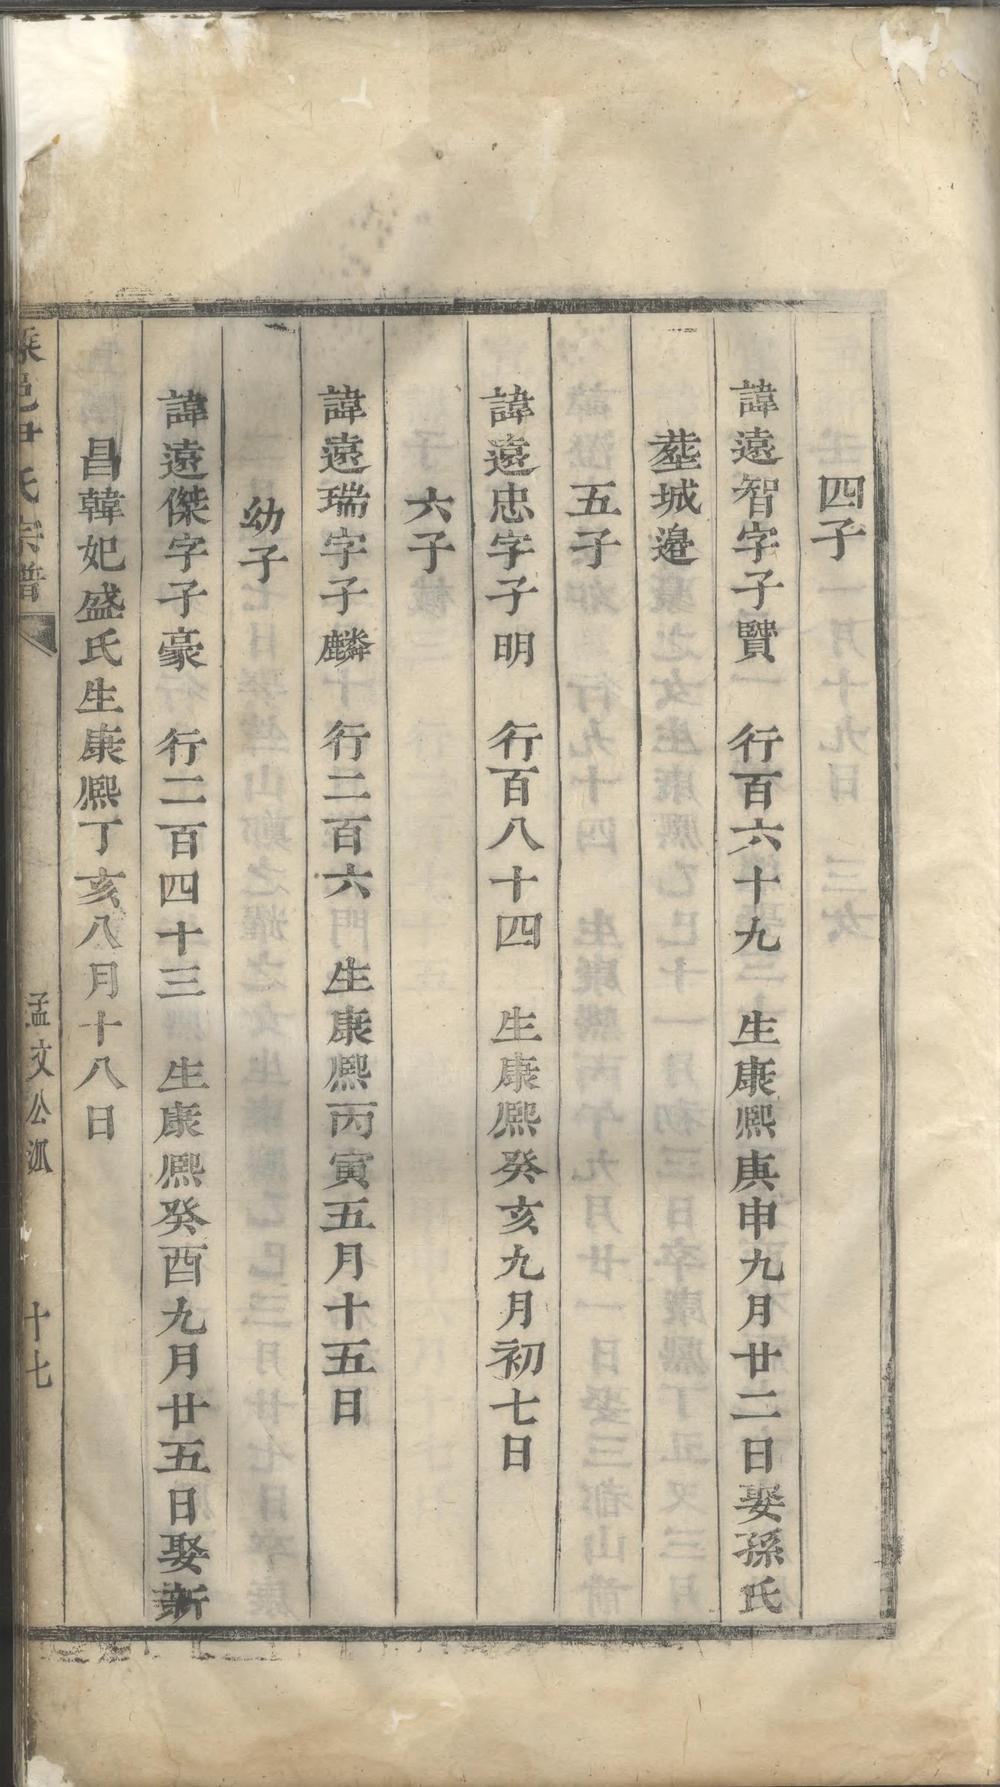 四子
諱遠智字子賢　行百六十九　生康熙庚申九月廿二日娶孫氏
塟城邉
五子
諱遠忠字子明　行百八十四　生康熙癸亥九月初七日
六子
諱遠瑞字子麟　行二百六　生康熙丙寅五月十五日
幼子
諱遠傑字子豪　行二百四十三　生康熙癸酉九月廿五日娶新
昌韓妃盛氏生康熙丁亥八月十八日
邑尹氏宗譜　孟文公派　十七